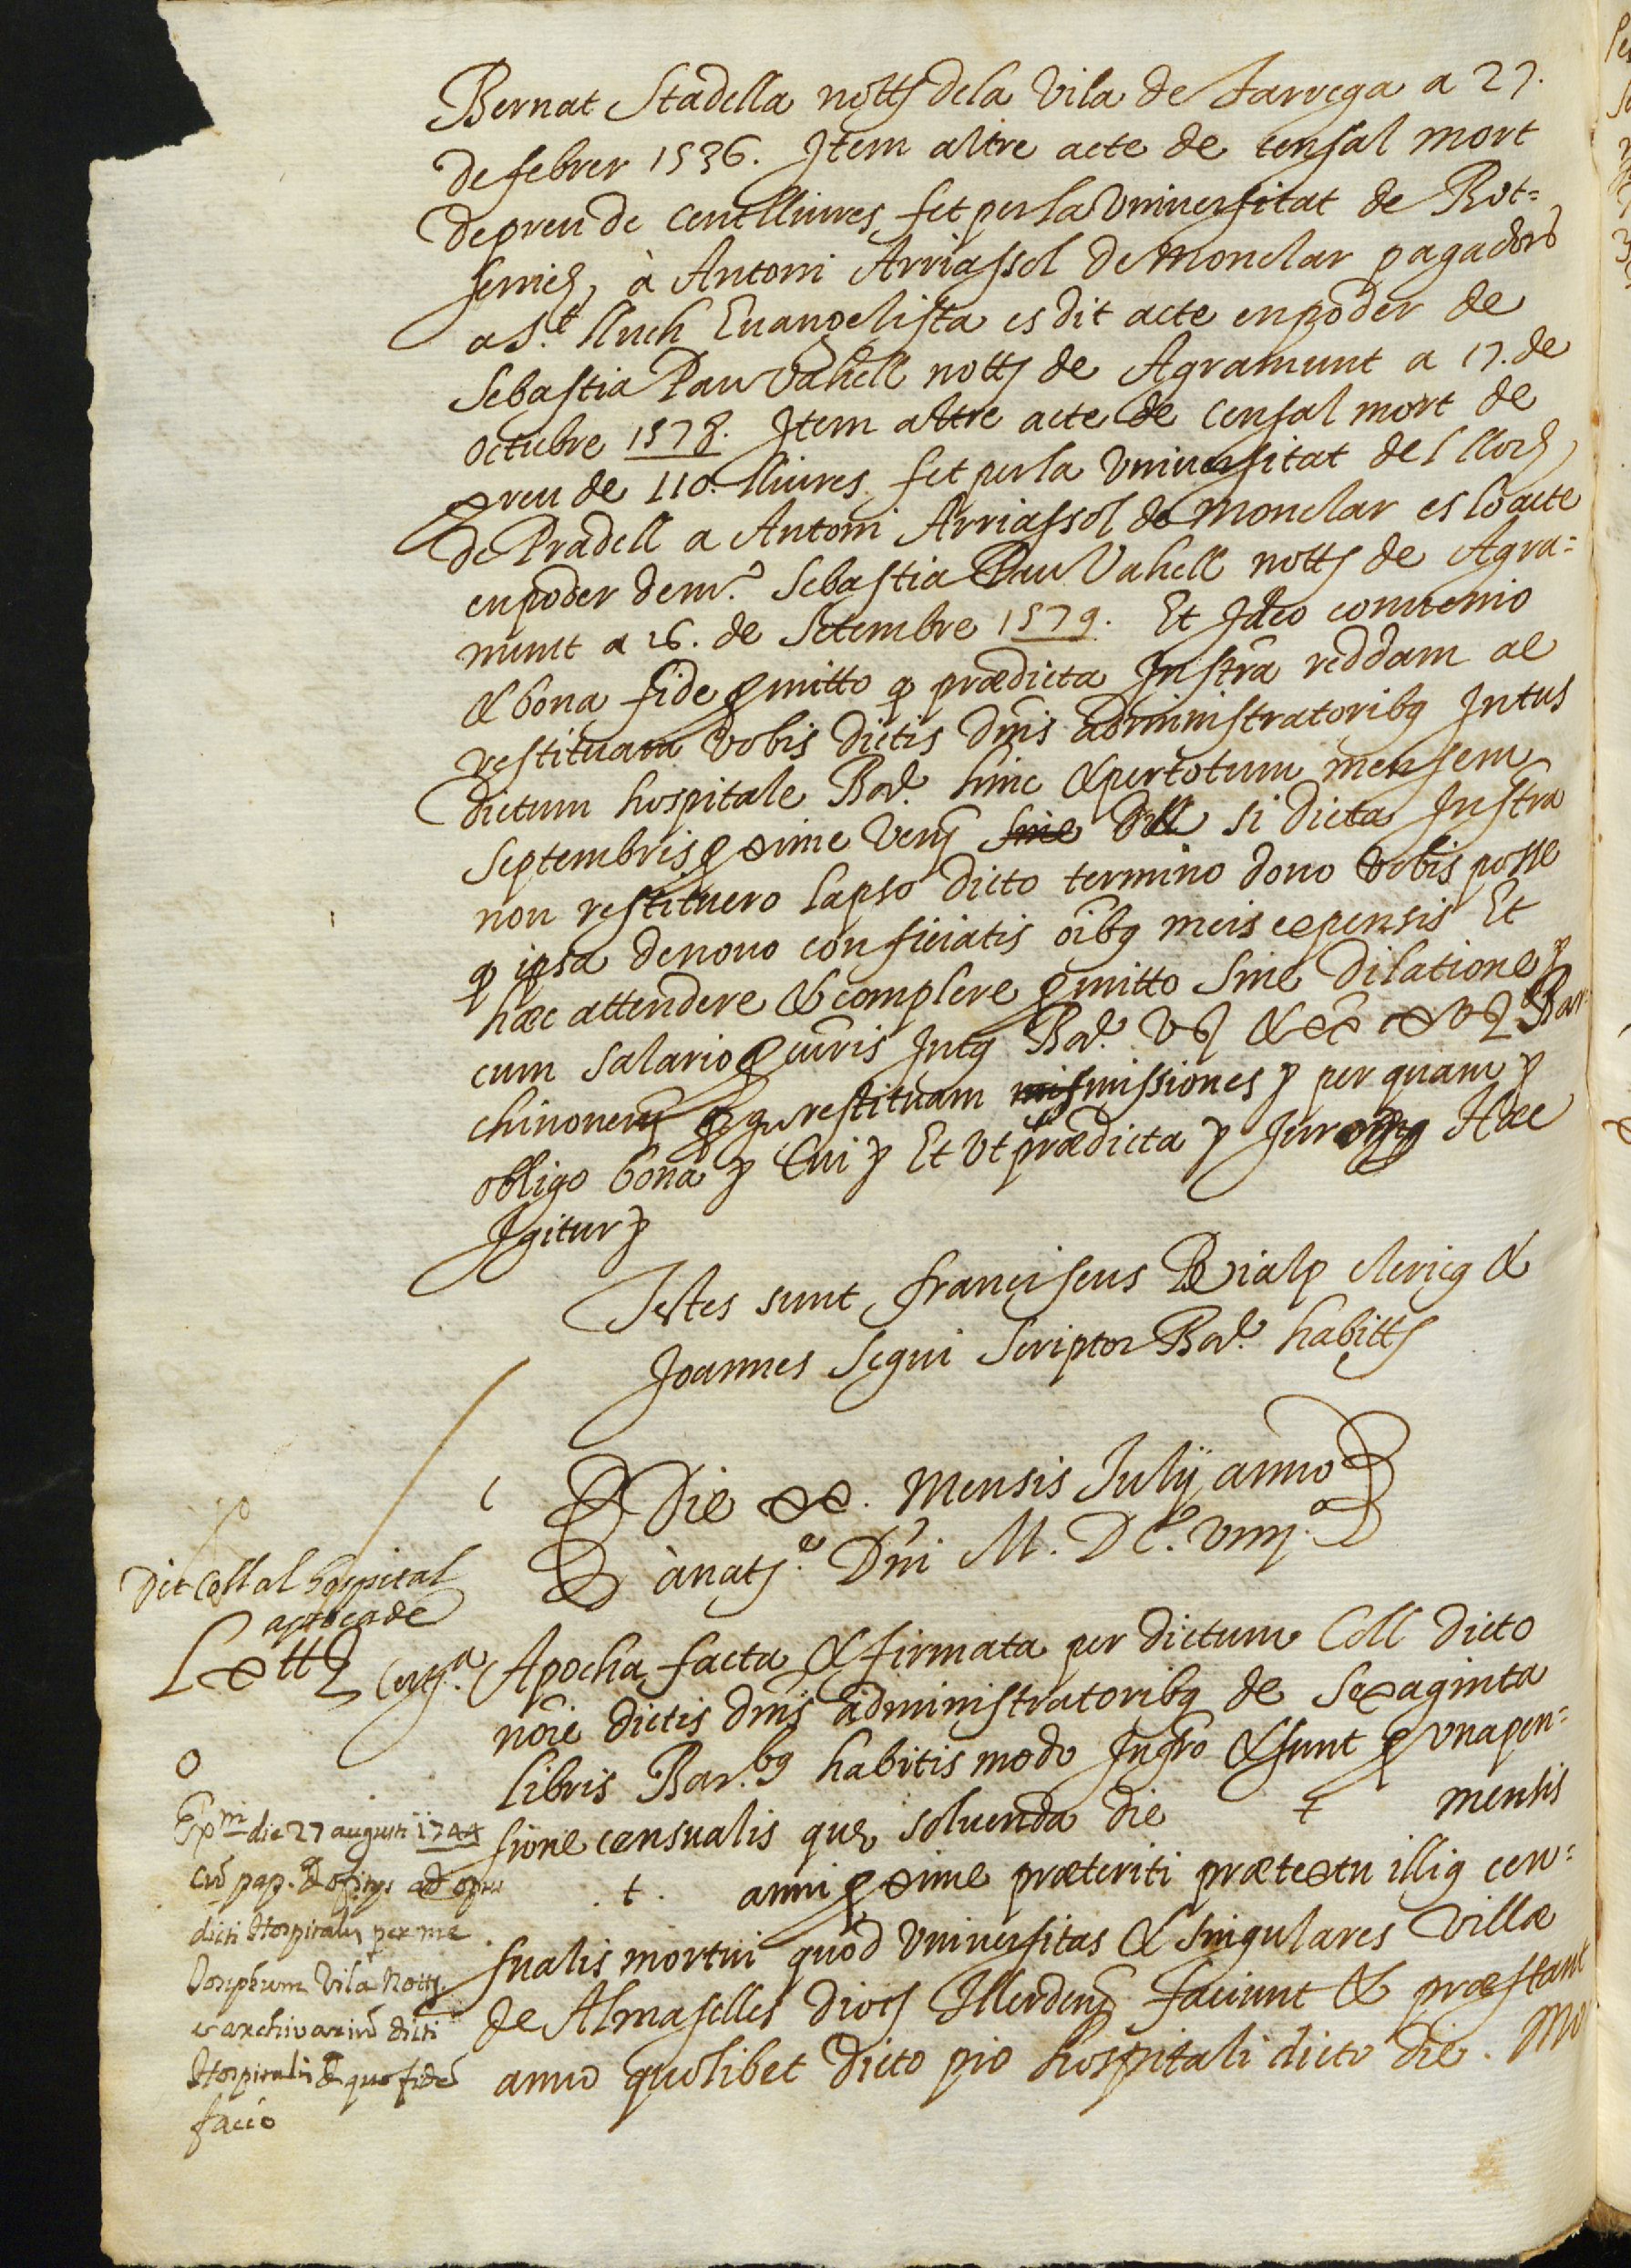 Bernat Stadella notts dela vila de Tarrega a 27.
de febrer 1536. Item altre acte de censal mort
de preu de cent lliures fet per la Universitat de Rot=
fernich, à Antoni Arriassol de Monclar pagadors
a S.t lluch Euangelista es dit acte en poder de
Sebastia Pau Vahell notts de Agramunt a 17. de
octubre 1578. Item altre acte de Censal mort de
preu de 110. lliures fet per la Universitat del lloch
de Pradell a Antoni Arriassol de Monclar es lo acte
en poder de m.r Sebastia Pau Vahell notts de Agra=
munt a 26. de Setembre 1579. Et Ideo conuenio
& bona fide pmitto q prædicta Instra reddam ac
restituam vobis dictis dnis administratoribq Intus
dictum hospitale Bar.e hinc & per totum mensem
Septembris pxime venj sine si dicta Instra
non restituero lapso dicto termino dono vobis posse
q ipsa denouo conficiatis oibq meis expensis Et
hæc attendere & complere pmitto Sine dilatione
cum salario pcuris Intq Bar.e v s & extra x s Bar
chinonem restituam missiones per quam
obligo bona Et vt prædicta Juro Hæc
Igitur
Testes sunt franciscus Rialp clericq &
Joannes Segui Scriptor Bar.e habitts
Die xx. Mensis Julij anno
à nats.e Dni M. DC.o viiij.o
Dit Coll al hospital
apoca de
Lx ll
Apocha facta & firmata per dictum Coll dicto
noie dictis dnis administratoribq de Sexaginta
libris Bar.bq habitis modo Infro & sunt p vna pen=
sione censualis que soluenda die t mensis
t. anni pxime præteriti prætextu illiq cen=
sualis mortui quod vniuersitas & singulares villæ
de Almaselles diocs Illerdens faciunt & præstant
anno quolibet dicto pio hospitali dicto die.
o
Exp.m die 27 augusti 1744
cū pap. ad opus
dicti Hospitalis per me
Josephum Vila Notts
et archivariū dicti
Hospitalis de quo fidē
facio